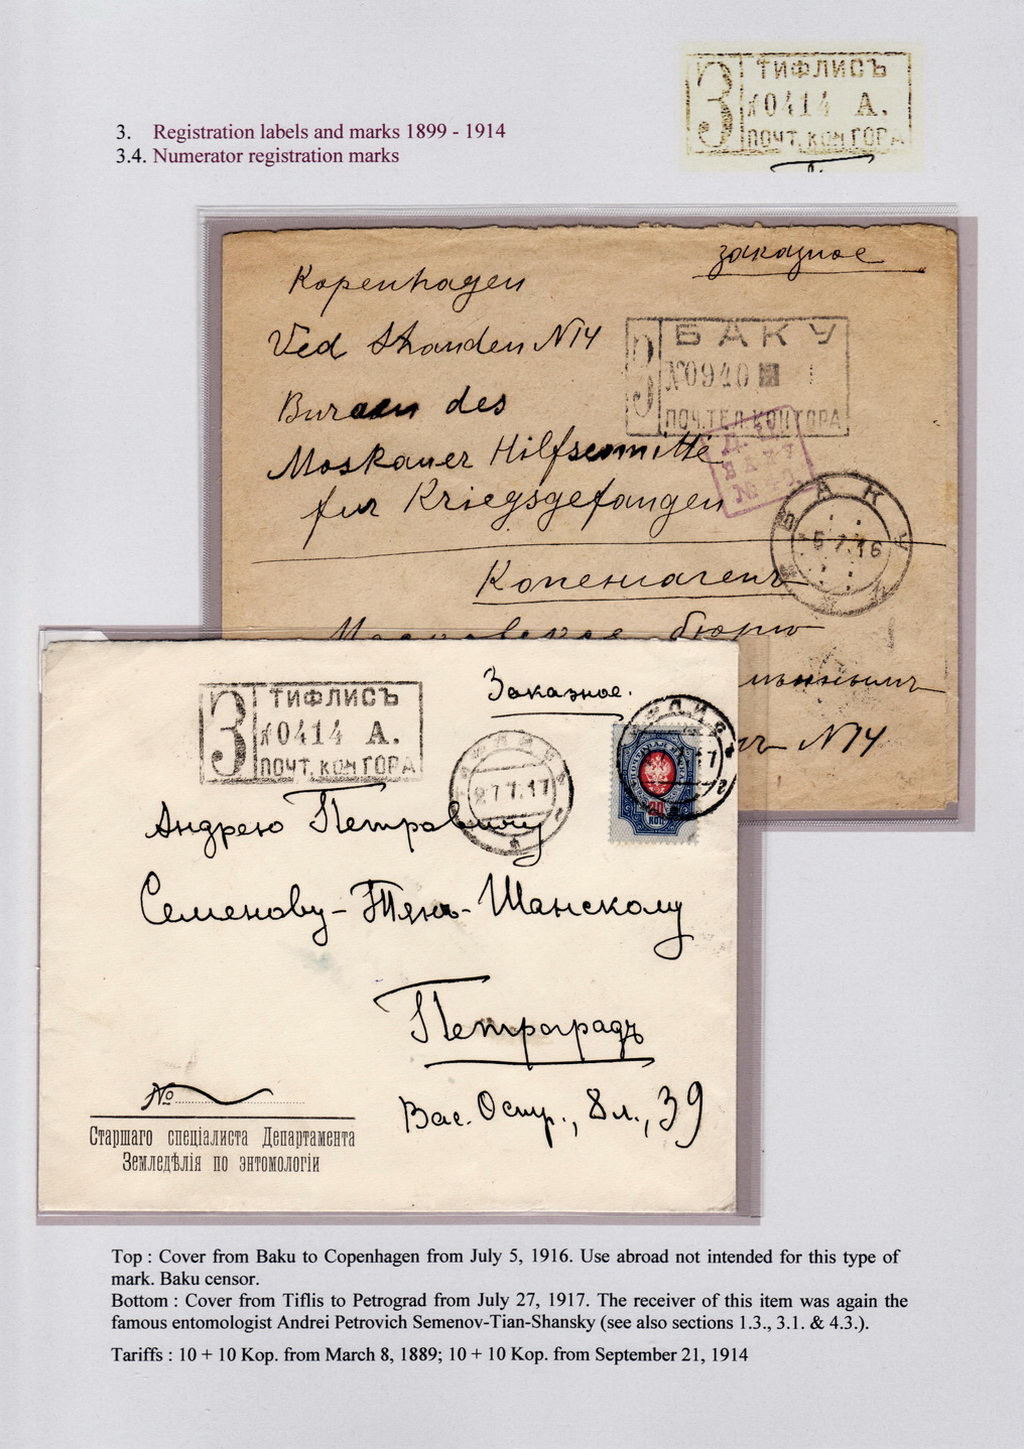 3. Registration labels and marks 1899 - 1914
3.4. Numerator registration marks
З ТИФЛИСЪ
№0414 А.
ПОЧТ. КОН ГОРА
заказное
Kopenhagen
Ved Stranden N14
Bureau des
Moskauer Hilfscomitté
für Kriegsgefangen
З БАКУ
№0940
ПОЧ.ТЕЛ.КОНТОРА
БАКУ
№
БАКУ
5 7.16
Копенгагенъ
Московское бюро
N14
З ТИФЛИСЪ
№0414 А.
ПОЧТ. КОН ГОРА
Заказное.
ТИФЛИСЪ
27 7.17
20
КОП
Андрею Петровичу
Семенову-Тянъ-Шанскому
Петроградъ
Вас. Остр., 8 л., 39
№
Старшаго спеціалиста Департамента
Земледѣлія по энтомологіи
Top : Cover from Baku to Copenhagen from July 5, 1916. Use abroad not intended for this type of
mark. Baku censor.
Bottom : Cover from Tiflis to Petrograd from July 27, 1917. The receiver of this item was again the
famous entomologist Andrei Petrovich Semenov-Tian-Shansky (see also sections 1.3., 3.1. & 4.3.).
Tariffs : 10 + 10 Kop. from March 8, 1889; 10 + 10 Kop. from September 21, 1914